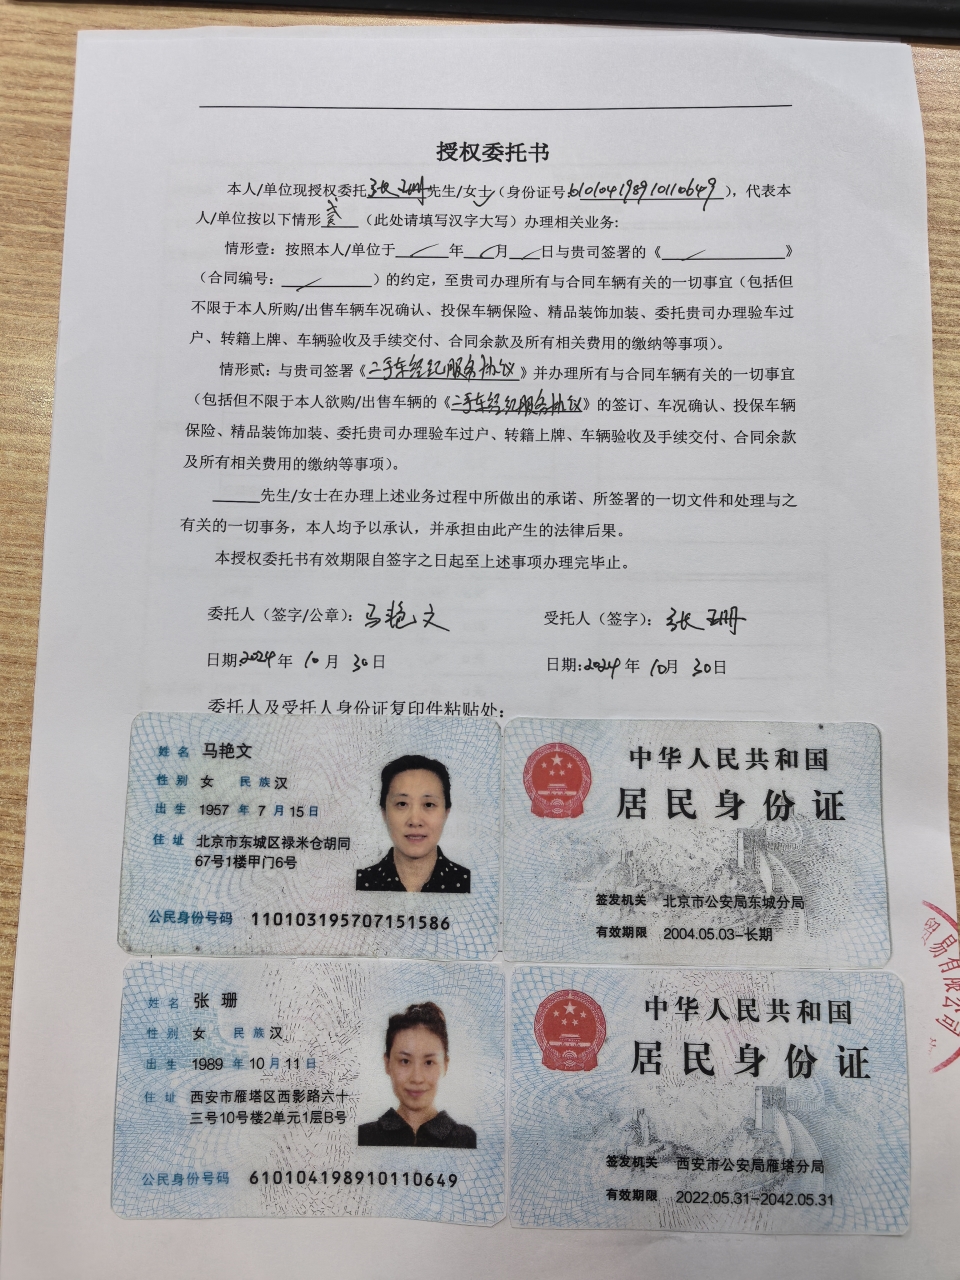 授权委托书
本人/单位现授权委托张珊先生/女士(身份证号:610104198910110649),代表本
人/单位按以下情形贰(此处请填写汉字大写)办理相关业务:
情形壹:按照本人/单位于 年 月 日与贵司签署的《 》
(合同编号: )的约定,至贵司办理所有与合同车辆有关的一切事宜(包括但
不限于本人所购/出售车辆车况确认、投保车辆保险、精品装饰加装、委托贵司办理验车过
户、转籍上牌、车辆验收及手续交付、合同余款及所有相关费用的缴纳等事项)。
情形贰:与贵司签署《二手车经纪服务协议》并办理所有与合同车辆有关的一切事宜
(包括但不限于本人欲购/出售车辆的《二手车经纪服务协议》的签订、车况确认、投保车辆
保险、精品装饰加装、委托贵司办理验车过户、转籍上牌、车辆验收及手续交付、合同余款
及所有相关费用的缴纳等事项)。
先生/女士在办理上述业务过程中所做出的承诺、所签署的一切文件和处理与之
有关的一切事务,本人均予以承认,并承担由此产生的法律后果。
本授权委托书有效期限自签字之日起至上述事项办理完毕止。
委托人(签字/公章):马艳文 受托人(签字):张珊
日期:2024年 10月 30日 日期:2024年 10月 30日
委托人及受托人身份证复印件粘贴处:
姓名 马艳文
性别 女 民族 汉
出生 1957 年 7 月 15 日
住址 北京市东城区禄米仓胡同
67号1楼甲门6号
公民身份号码 110103195707151586
中华人民共和国
居民身份证
签发机关 北京市公安局东城分局
有效期限 2004.05.03-长期
姓名 张珊
性别 女 民族 汉
出生 1989 年 10 月 11 日
住址 西安市雁塔区西影路六十
三号10号楼2单元1层B号
公民身份号码 610104198910110649
中华人民共和国
居民身份证
签发机关 西安市公安局雁塔分局
有效期限 2022.05.31-2042.05.31
贸易有限公司